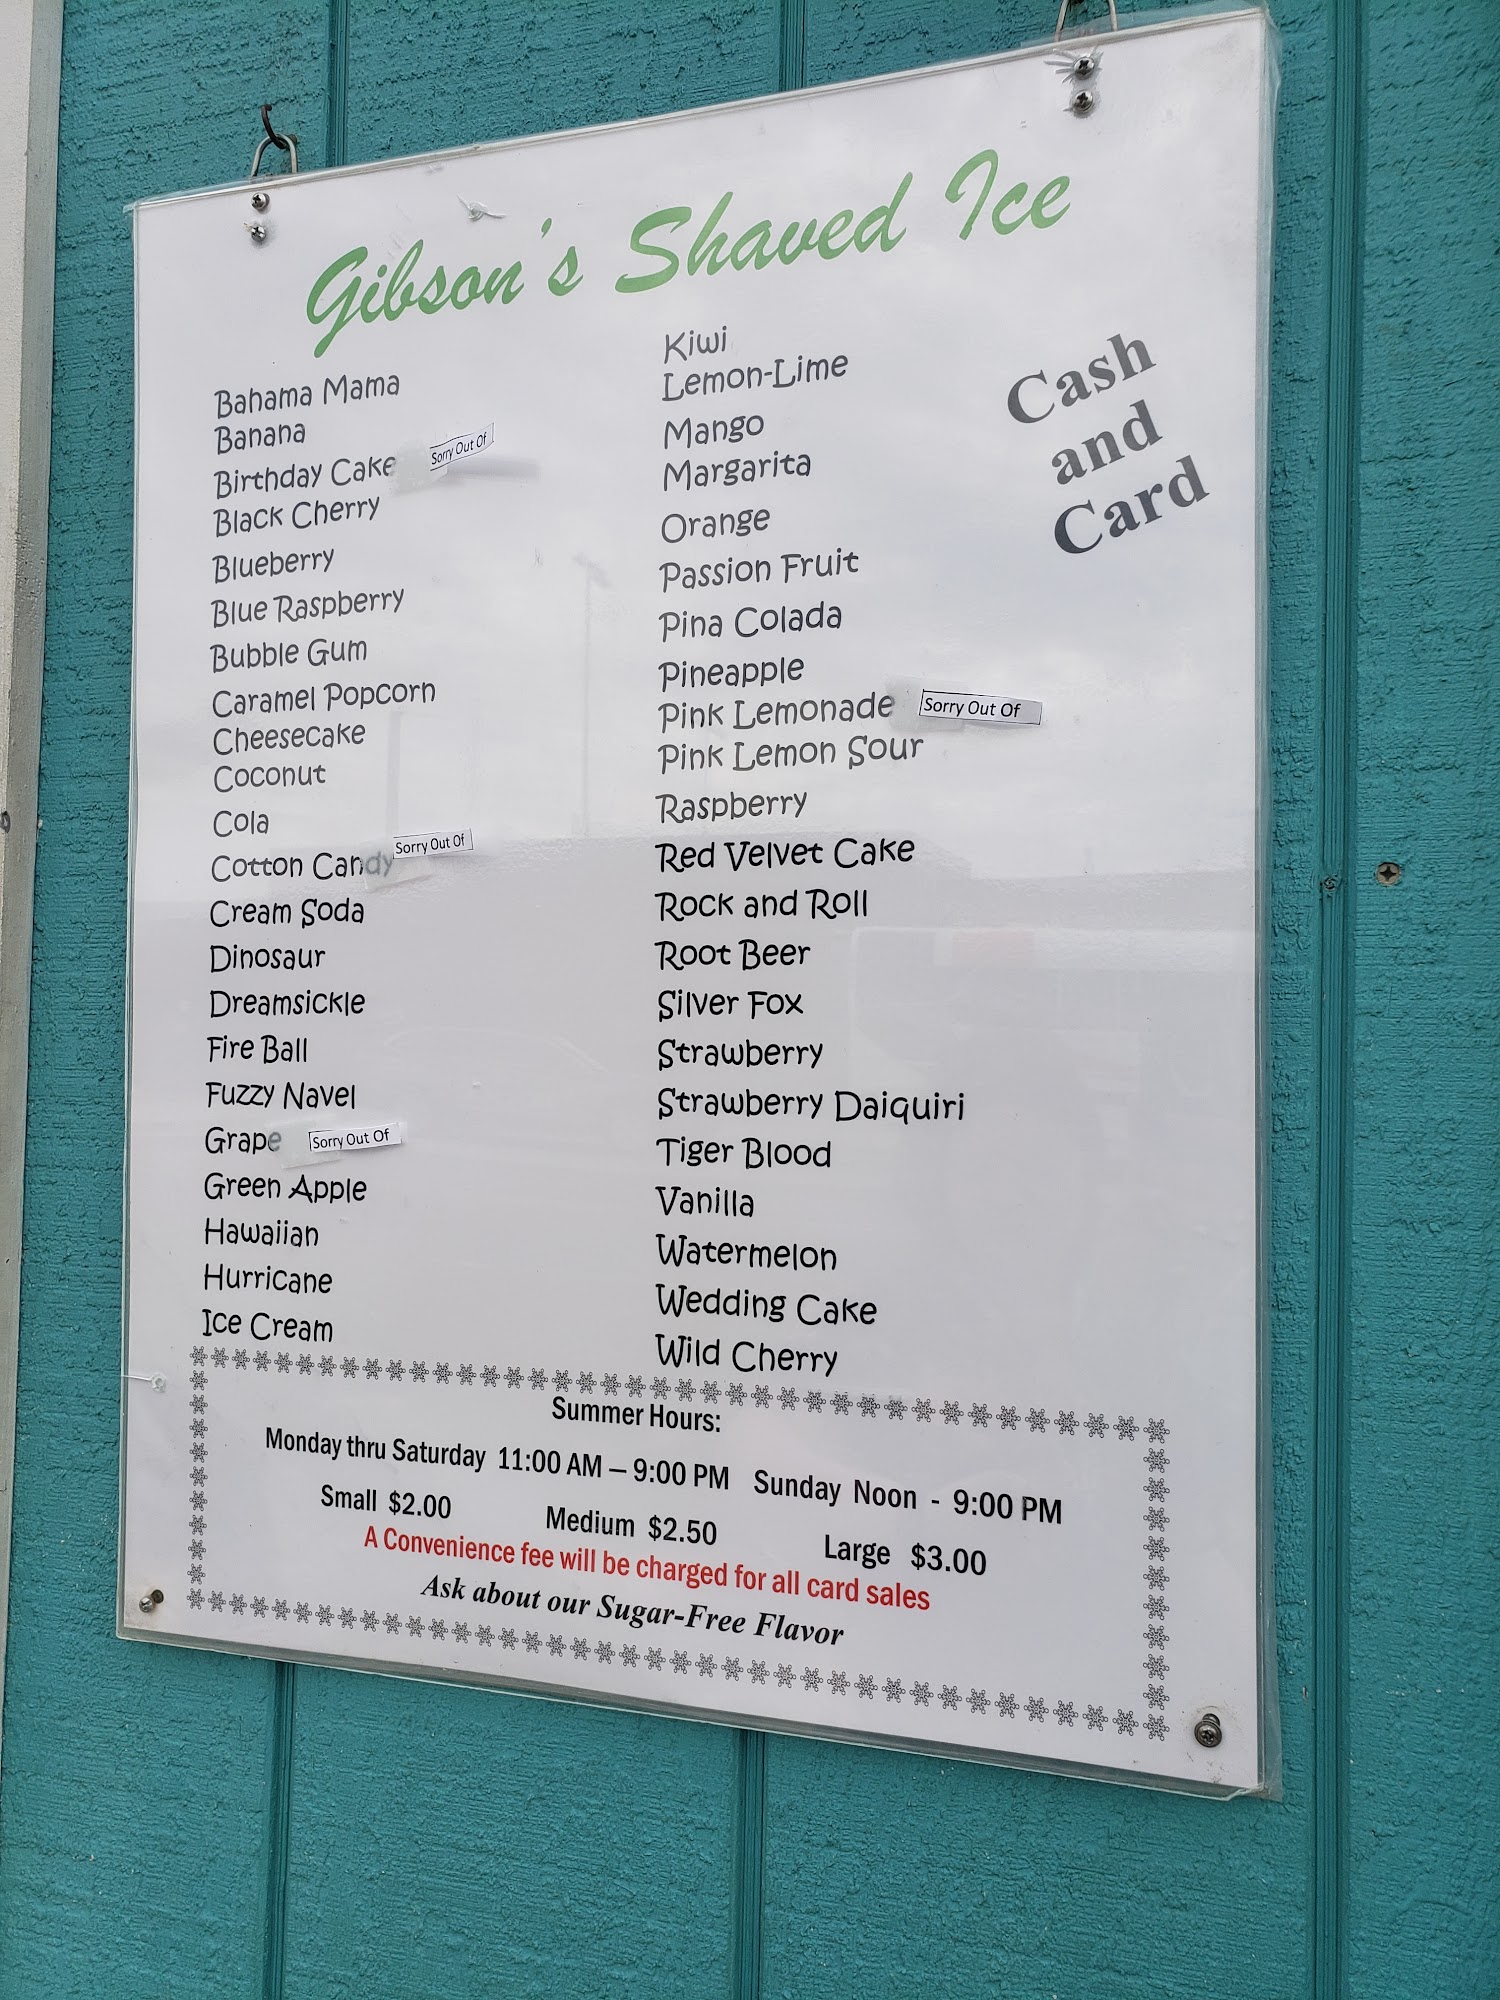 Gibson's Shaved Ice
Cash
and
Card
Bahama Mama
Banana
Birthday Cake Sorry Out Of
Black Cherry
Blueberry
Blue Raspberry
Bubble Gum
Caramel Popcorn
Cheesecake
Coconut
Cola
Cotton Candy Sorry Out Of
Cream Soda
Dinosaur
Dreamsickle
Fire Ball
Fuzzy Navel
Grape Sorry Out Of
Green Apple
Hawaiian
Hurricane
Ice Cream
Kiwi
Lemon-Lime
Mango
Margarita
Orange
Passion Fruit
Pina Colada
Pineapple
Pink Lemonade Sorry Out Of
Pink Lemon Sour
Raspberry
Red Velvet Cake
Rock and Roll
Root Beer
Silver Fox
Strawberry
Strawberry Daiquiri
Tiger Blood
Vanilla
Watermelon
Wedding Cake
Wild Cherry
Summer Hours:
Monday thru Saturday 11:00 AM – 9:00 PM Sunday Noon - 9:00 PM
Small $2.00 Medium $2.50 Large $3.00
A Convenience fee will be charged for all card sales
Ask about our Sugar-Free Flavor